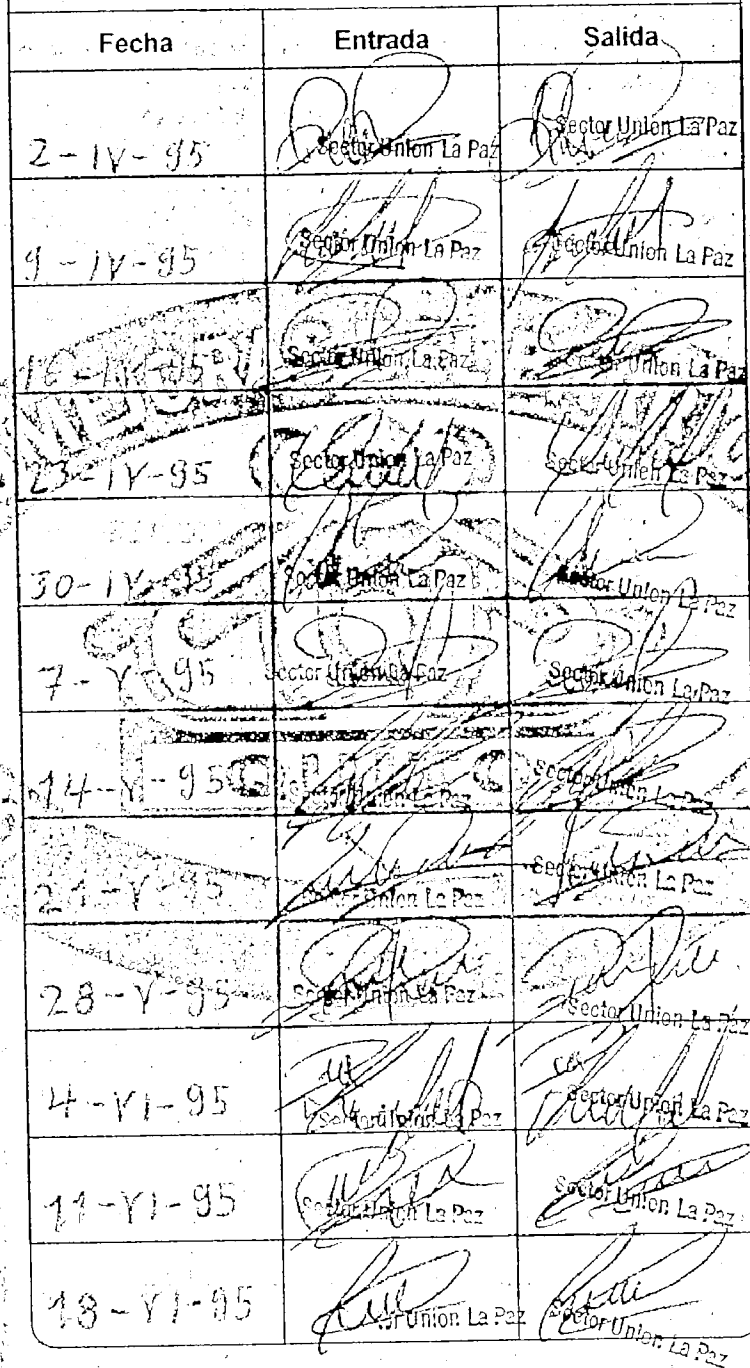 Fecha Entrada Salida
2-IV-95 Sector Union La Paz Sector Union La Paz
9-IV-95 Sector Union La Paz Sector Union La Paz
16-IV-95 Sector Union La Paz Sector Union La Paz
23-IV-95 Sector Union La Paz Sector Union La Paz
30-IV-95 Sector Union La Paz Sector Union La Paz
7-V-95 Sector Union La Paz Sector Union La Paz
14-V-95 Sector Union La Paz Sector Union La Paz
21-V-95 Sector Union La Paz Sector Union La Paz
28-V-95 Sector Union La Paz Sector Union La Paz
4-VI-95 Sector Union La Paz Sector Union La Paz
11-VI-95 Sector Union La Paz Sector Union La Paz
18-VI-95 Union La Paz Sector Union La Paz